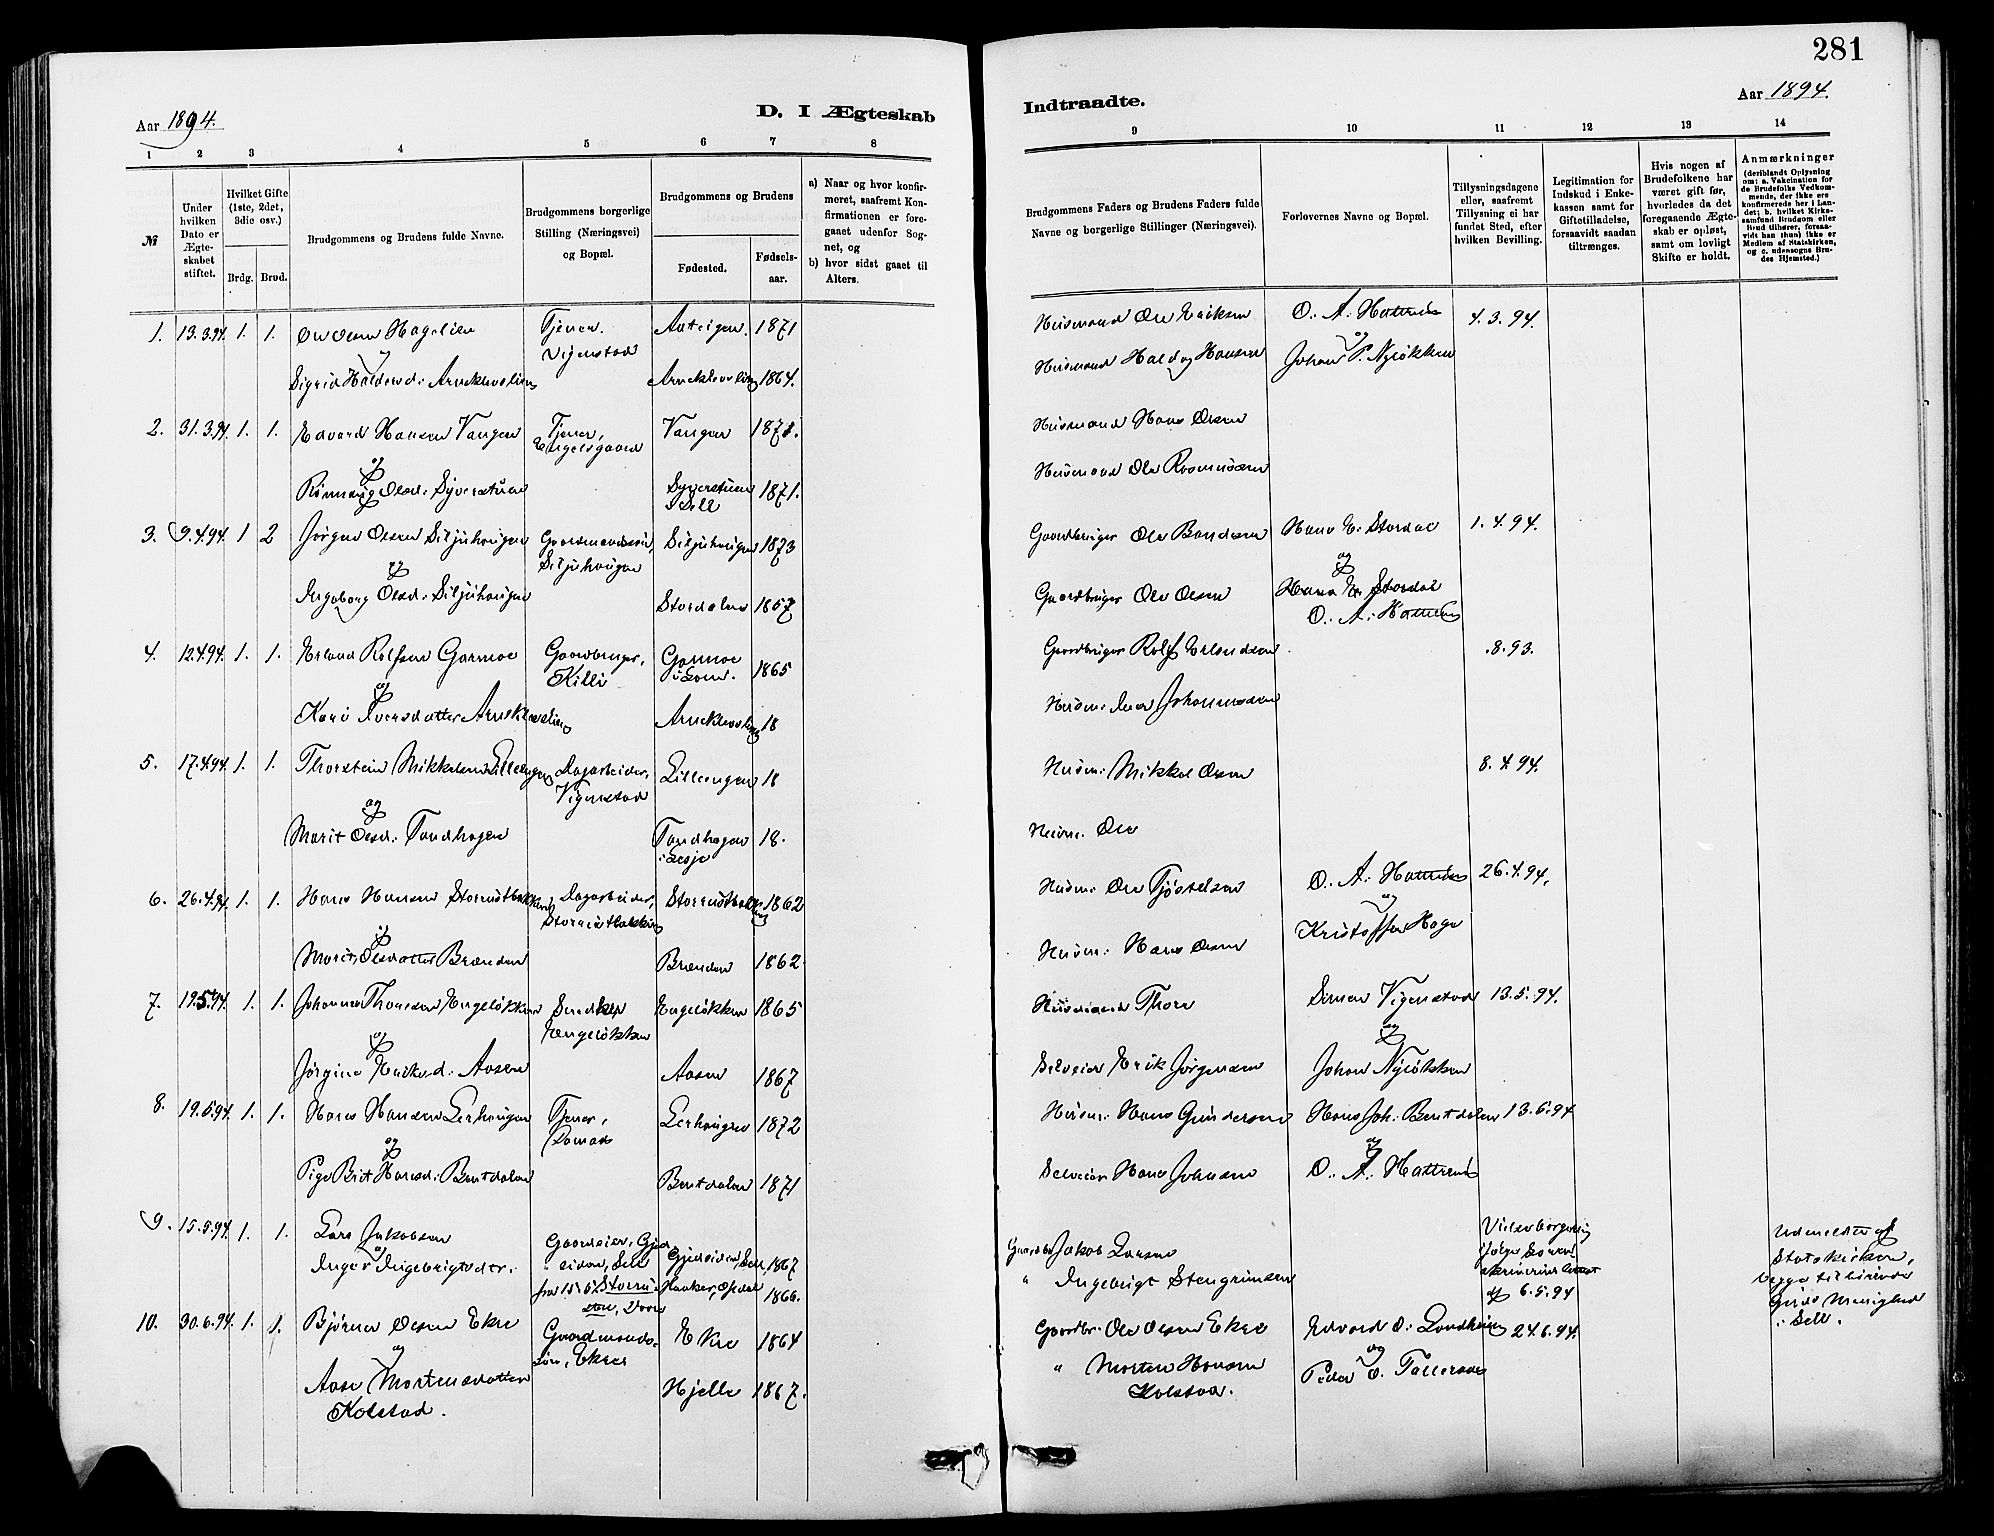 281
Aar 1894.
D. I Ægteskab
Indtraadte.
Aar 1894.
1 2 3 4 5 6 7 8
9 10 11 12 13 14
№
Under hvilken Dato er Ægteskabet stiftet.
Hvilket Gifte (1ste, 2det, 3die osv.)
Brdg. Brud.
Brudgommens og Brudens fulde Navne.
Brudgommens borgerlige Stilling (Næringsvei) og Bopæl.
Brudgommens og Brudens
Fødested. Fødselsaar.
a) Naar og hvor konfirmeret, saafremt Konfirmationen er foregaaet udenfor Sognet, og
b) hvor sidst gaaet til Alters.
Brudgommens Faders og Brudens Faders fulde Navne og borgerlige Stillinger (Næringsvei).
Forlovernes Navne og Bopæl.
Tillysningsdagene eller, saafremt Tillysning ei har fundet Sted, efter hvilken Bevilling.
Legitimation for Indskud i Enkekassen samt for Giftetilladelse, forsaavidt saadan tiltrænges.
Hvis nogen af Brudefolkene har været gift før, hvorledes da det foregaaende Ægteskab er opløst, samt om lovligt Skifte er holdt.
Anmærkninger
(deriblandt Oplysning om: a. Vakcination for de Brudefolks Vedkommende, der ikke ere konfirmerede her i Landet; b. hvilket Kirkesamfund Brudgom eller Brud tilhører, forsaavidt han (hun) ikke er Medlem af Statskirken, og c. udensogns Brudes Hjemsted.)
1. 13.3.94. 1. 1. Ole Olsen Hagelien Tjener. Vigenstad 1871 Husmand Ole Eriksen O. A. Hattrem 4.3.94.
og
Sigrid Haldorsd: Arneklevlien Arneklevlien 1864. Husmand Haldog Hansen Johan P. Nyløkken
2. 31.3.94. 1. 1. Edvard Hansen Vangen Tjener, Engelsgaard Vangen 1871. Husmand Hans Olsen
og
Rønnaug Olsd: Syverstuen Syverstuen i Sell 1871. Husmand Ole Rasmussen
3. 9.4.94. 1 2 Jørgen Olsen Siljuhaugen Gaardmandssøn, Siljuhaugen Siljuhaugen 1873 Gaardbruger Ole Hans E. Stordal 1.4.94.
og
Ingeborg Olsd: Siljuhaugen Stordalen 1857 Gaardbruger Ole Olsen Hans E. Stordal
O. A. Hattrem
4. 12.4.94. 1. 1. Erland Rolfsen Garmoe Gaardbruger, Killi Garmoe i Lom. 1865 Gaardbruger Rolf Erlandsen .8.93.
og
Kari Iversdatter Arneklevlien Arneklevlien 18 Husm: Iver Johannesen
5. 17.4.94. 1. 1. Thorstein Mikkelsen Lilleengen Dagarbeider, Vigenstad Lilleengen 18 Husm: Mikkel Olsen 8.4.94.
og
Marit Olsd: Tandhagen Tandhagen i Lesje 18. Husm: Ole
6. 26.4.94. 1. 1. Hans Hansen Storrustbakken Dagarbeider, Storrustbakken Storrustbakken 1862 Husm: Ole Tjøstelsen O. A. Hattrem 26.4.94.
og
Marit Olsdatter Brænden Brænden 1862. Husm: Hans Olsen Kristoffer Hage
7. 19.5.94. 1. 1. Johannes Thoresen Engeløkken Snedker Engeløkken Engeløkken 1865 Husmand Thore Simen Vigenstad 13.5.94.
og
Jørgine Eriksd: Aasen Aasen 1867 Selveier Erik Jørgensen Johan Nyløkken
8. 19.5.94. 1. 1. Hans Hansen Lerhaugen Tjener, Lomas Lerhaugen 1872 Husm: Hans Gundersen Hans Joh. Bentdalen 13.5.94
og
Pige Brit Hansd: Bentdalen Bentdalen 1871 Selveier Hans Johnsen O. A. Hattrem
9. 15.5.94. 1. 1. Lars Jakobsen Gaardeier, Sell 1867 Gaardbr Jakob Larsen
og
Inger Ingebrigtsdtr. 1866. " Ingebrigt Stengrimsen 6.5.94
Udmeldte af Statskirken, begge tilhørende Menighed i Sell.
10. 30.6.94. 1. 1. Bjørner Olsen Ekre Gaardmandssøn, Ekre Ekre 1864 Gaardbr. Ole Olsen Ekre Edvard O. Landheim 24.6.94.
og
Aase Mortensdatter Kolstad. Hjelle 1867. " Morten Hansen Kolstad. Peder O.